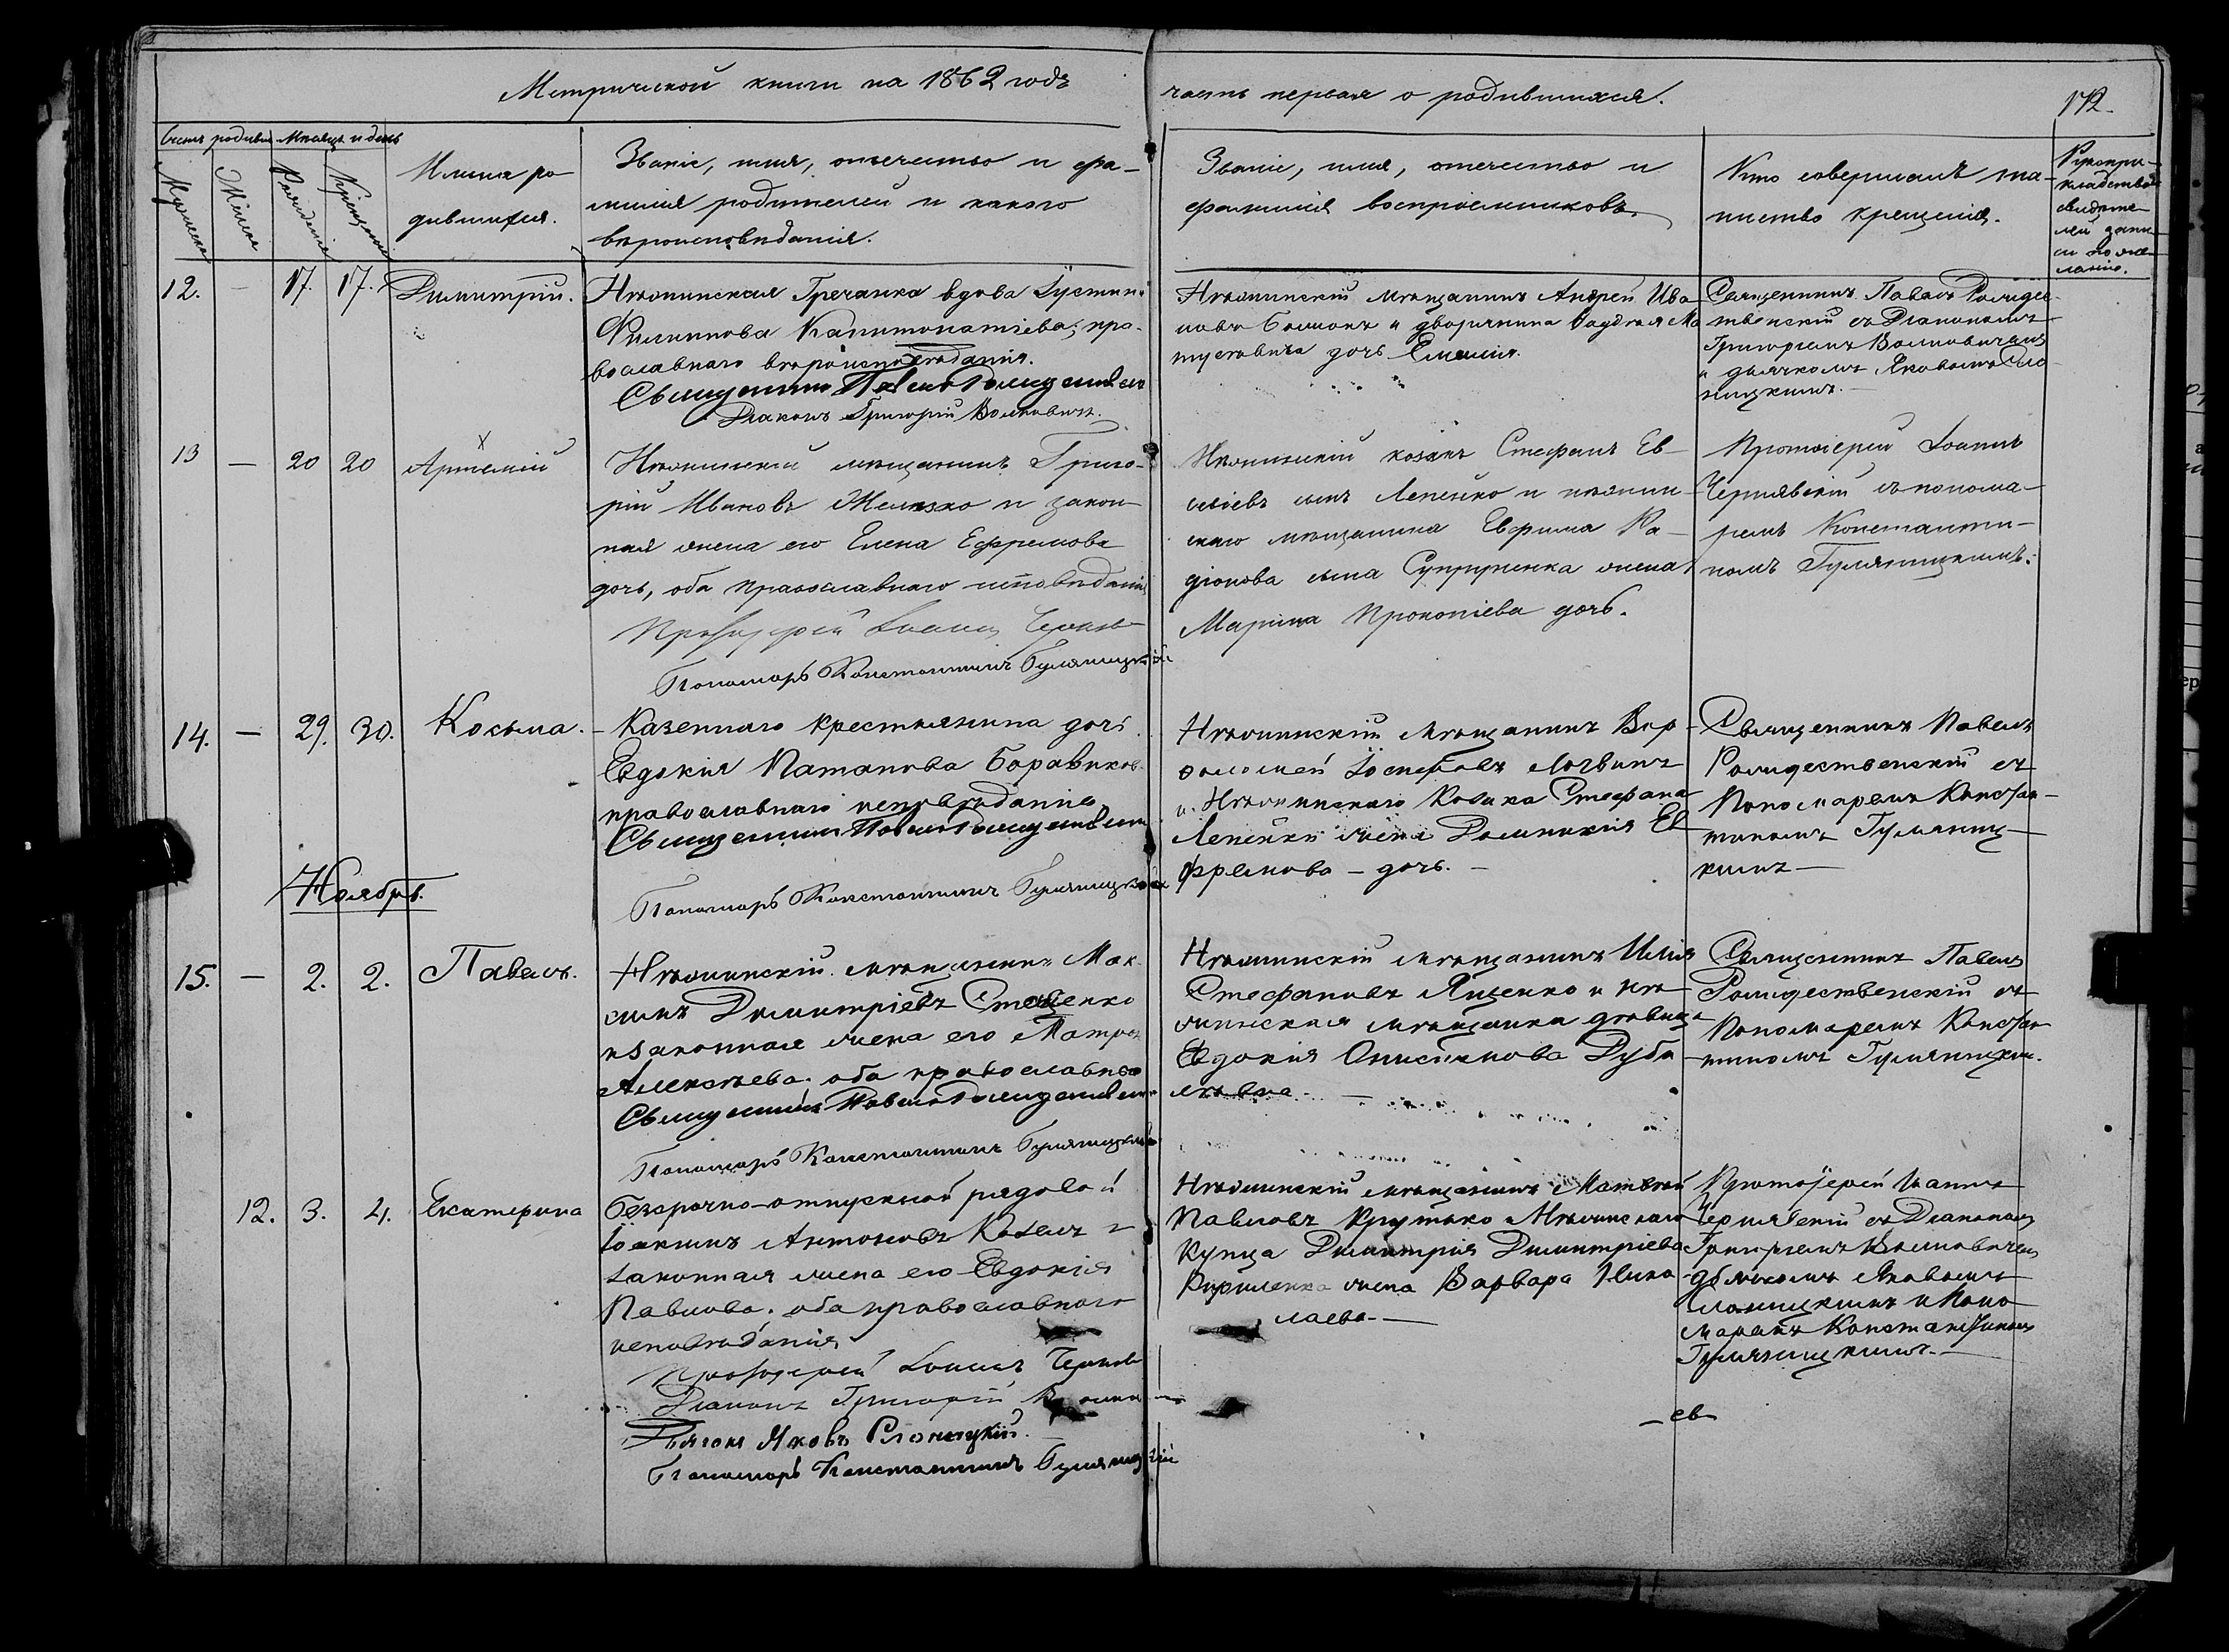 Метрической книги на 1862 годъ
часть первая о родившихся.
172.
Счетъ родивш. Мѣсяцъ и день
Мужеска
Женска
Рожденія
Крещенія
Имена ро-
дившихся.
Званіе, имя, отечество и фа-
милія родителей и какого
вѣроисповѣданія.
Званіе, имя, отечество и
фамилія воспріемниковъ.
Кто совершалъ та-
инство крещенія.
Рукопри-
кладство
свидѣте-
лей запи-
си по же-
ланію.
12. — 17. 17. Димитрій.
Нѣжинская Гречанка вдова Іустин.
Филиппова Капитонатіева, пра-
вославнаго вѣроисповѣданія.
Священникъ Павелъ Рождественскій
Діаконъ Григорій Волковичъ.
Нѣжинскій мѣщанинъ Андрей Ива
новъ и дворянина Ма
тусевича дочь Емилія.
Священникъ Павелъ Рождес-
твенскій съ Діакономъ
Григоріемъ Волковичемъ
и дьячкомъ Яковомъ Сло
ницкимъ. —
13 — 20 20 Артемій
Нѣжинскій мѣщанинъ Григо-
рій Ивановъ Желѣзко и закон-
ная жена его Елена Ефремова
дочь, оба православнаго исповѣданія
Протоіерей Іоаннъ Чернявс
Пономарь Константинъ Гуляницкій
Нѣжинскій козакъ Стефанъ Ев-
сѣевъ сынъ Лепейко и нѣжин-
скаго мѣщанина Евфима Ра-
діонова сына Супруненка жена
Марина Прокопіева дочь.
Протоіерей Іоаннъ
Чернявскій съ понома-
ремъ Константи-
номъ Гуляницкимъ.
14. — 29. 30. Косьма.
Казеннаго крестьянина дочь
Евдокія Патапова Боравиков.
православнаго исповѣданія
Священникъ Павелъ Рождественскій
Пономарь Константинъ Гуляницкій
Нѣжинскій мѣщанинъ Вар-
ѳоломей Іосифовъ Логвинъ
и Нѣжинскаго Козака Стефана
Лепейки жена Домникія Ев
фремова — дочь. —
Священникъ Павелъ
Рождественскій съ
Пономаремъ Констан-
тиномъ Гуляниц-
кимъ —
Ноябрь.
15. — 2. 2. Павелъ.
Нѣжинскій мѣщанинъ Мак
симъ Димитріевъ Стеценко
и законная жена его Матрон
Алексѣева. оба православнаго
Священникъ Павелъ Рождественскій
Пономарь Константинъ Гуляницкій
Нѣжинскій мѣщанинъ Илія
Стефановъ Яценко и нѣ
жинская мѣщанка дѣвица
Евдокія Онисимова Дуба
Священникъ Павелъ
Рождественскій съ
Пономаремъ Констан
тиномъ Гуляницким.
12. 3. 4. Екатерина
Безсрочно-отпускной рядовой
Іоакимъ Антоновъ Козелъ и
законная жена его Евдокія
Павлова. оба православнаго
исповѣданія
Протоіерей Іоаннъ Чернявс
Діаконъ Григорій Волков
Дьячокъ Яковъ Слоницкій.
Пономарь Константинъ Гуляницкій
Нѣжинскій мѣщанинъ Матвей
Павловъ Крутько и Нѣжинскаго
Купца Димитрія Димитріева
Кириленка жена Варвара Нико-
лаева. —
Протоіерей Іоаннъ
Чернявскій съ Діакономъ
Григоріемъ Волковичемъ
дьячкомъ Яковомъ
Слоницкимъ и Поно
маремъ Константиномъ
Гуляницкимъ. —